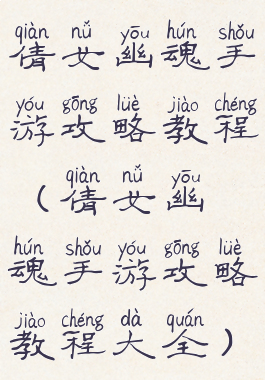 qiàn nǚ yōu hún shǒu
倩女幽魂手
yóu gōng lüè jiào chéng
游攻略教程
qiàn nǚ yōu
(倩女幽
hún shǒu yóu gōng lüè
魂手游攻略
jiào chéng dà quán
教程大全)